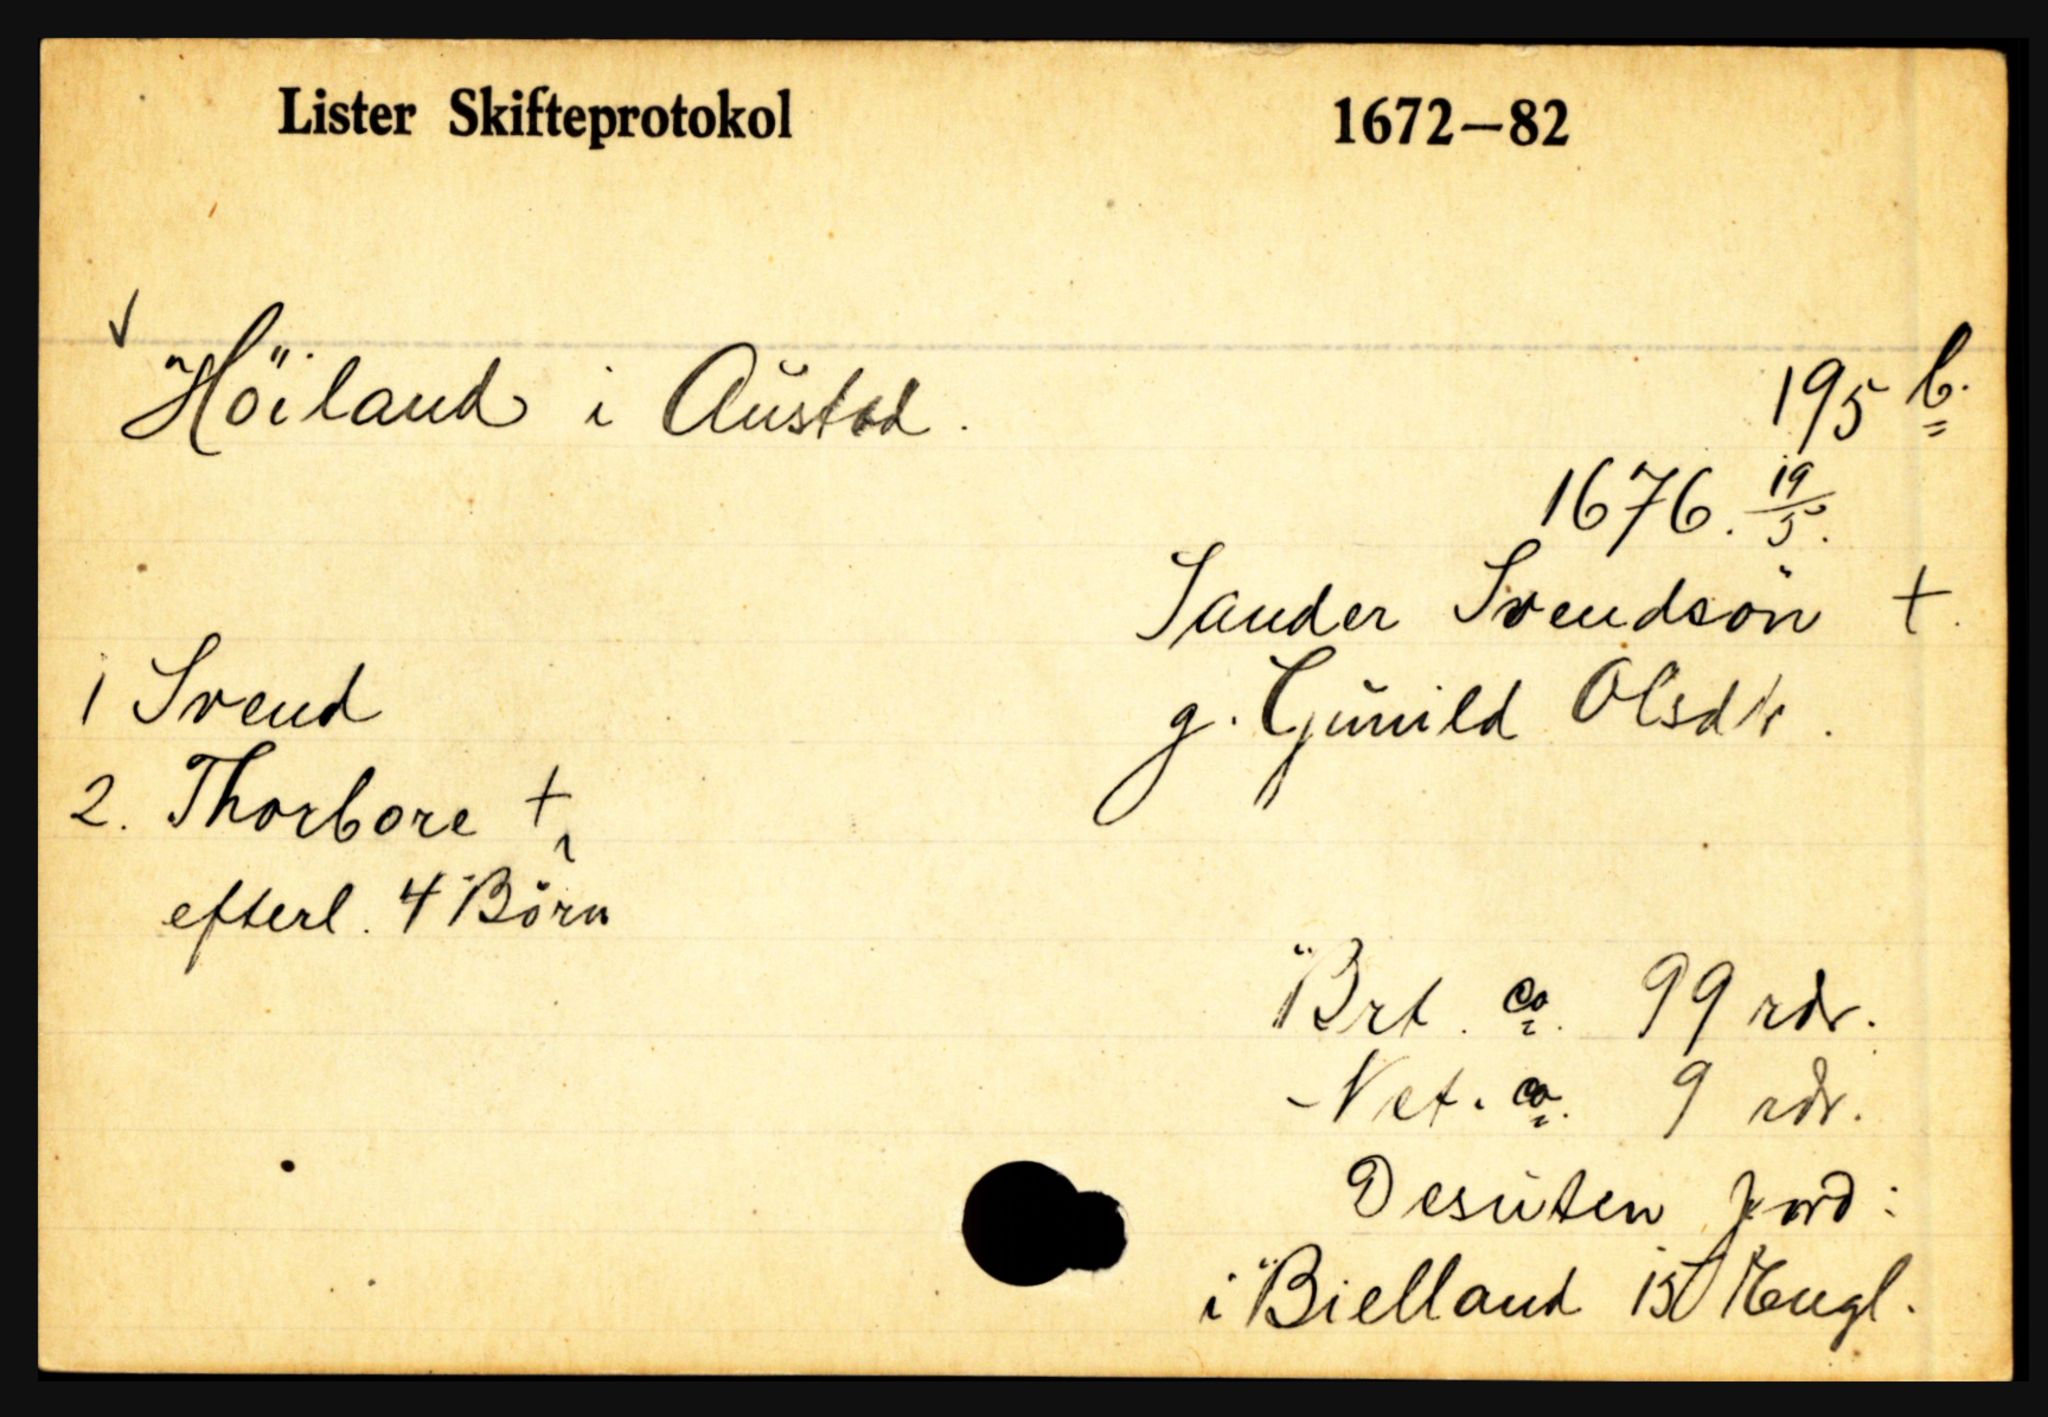 Lister Skifteprotokol 1672–82
Höiland i Austad. 195 b.
1676. 19/5.
Sander Svendsön +.
1 Svend
g. Gunild Olsdtr.
2. Thorbore +,
efterl. 4 Börn
Brt. ca. 99 rdr.
Net. ca. 9 rdr.
Desuten jord:
i Bielland 15 Engl.